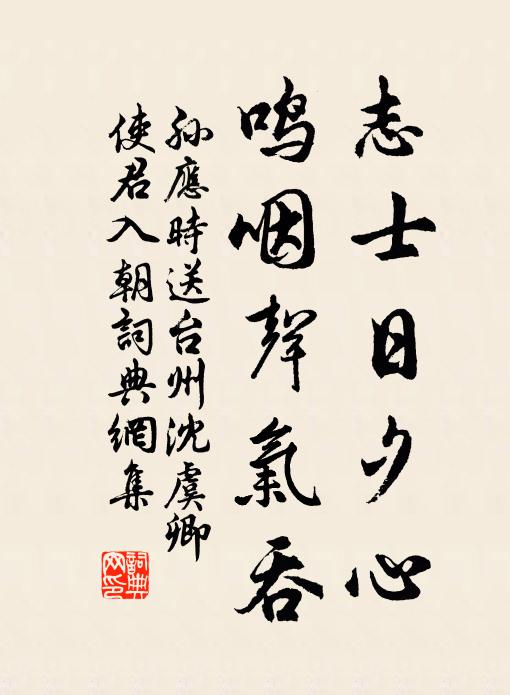 志士日夕心
鳴咽聲氣吞
孙應時送台州沈虞卿
使君入朝詞典網集
詞典
网印